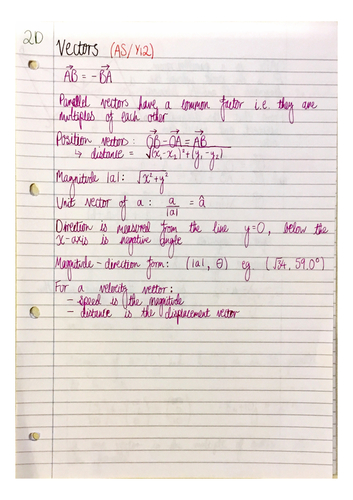 2D
Vectors (AS/Yr2)
AB = -BA
Parallel vectors have a common factor i.e. they are
multiples of each other
Position vectors: OB - OA = AB
↳ distance = √(x₁-x₂)²+(y₁-y₂)
Magnitude |a|: √x²+y²
Unit vector of a : a/|a| = â
Direction is measured from the line y=0, below the
x-axis is negative angle
Magnitude - direction form: (|a|, θ) eg (√34, 59.0°)
For a velocity vector:
- speed is the magnitude
- distance is the displacement vector